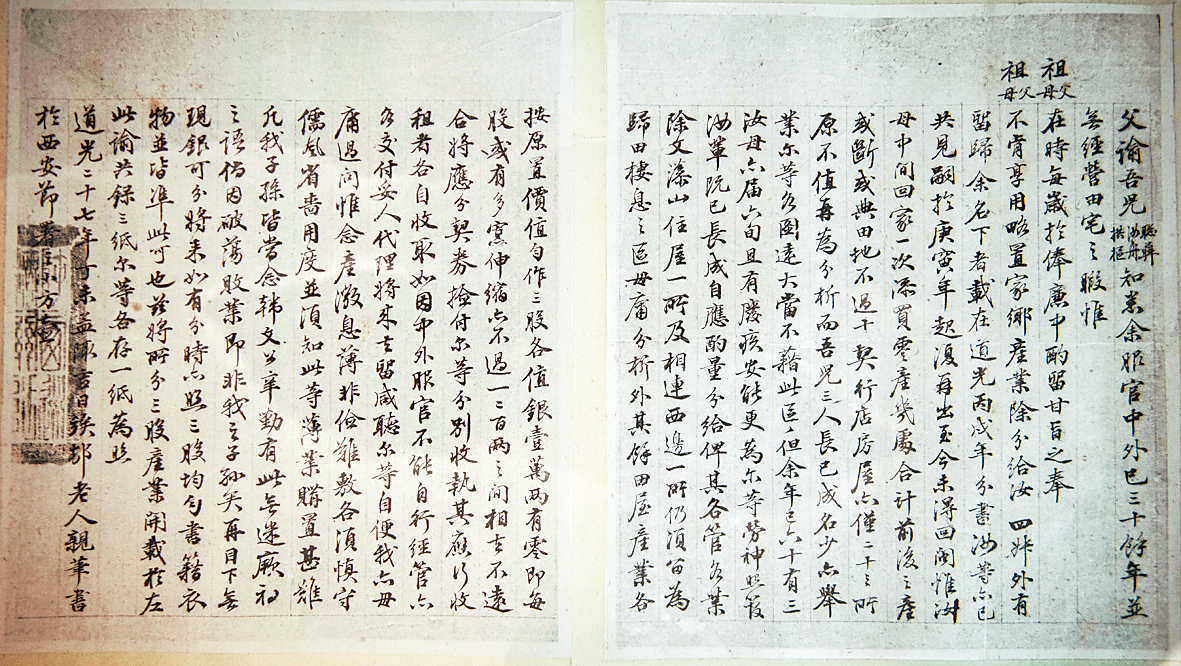 父諭吾兒聰彝汝舟拱樞知悉余服官中外已三十餘年並
無經營田宅之暇惟
祖父
祖母在時每歲於俸廉中酌留甘旨之奉
祖父
祖母不肯享用略置家鄉產業除分給汝四姊外有
留歸余名下者載在道光丙戌年分書汝等亦已
共見嗣於庚寅年起復再出至今未得回閩惟汝
母中間回家一次添買零產幾處合計前後之產
或斷或典田地不過十契行店房屋亦僅二十三所
原不值再為分析而吾兒三人長已成名少亦舉
業尔等各圖遠大當不藉此區區但余年已六十有三
汝母亦屆六旬且有腰疾安能更為尔等勞神照管
汝輩既已長成自應酌量分給俾其各管各業
除文藻山住屋一所及相連西邊一所仍須留為
歸田棲息之區毋庸分析外其餘田屋產業各
按原置價值勻作三股各值銀壹萬兩有零即每
股或有多寡伸縮亦不過一二百兩之間相去不遠
合將應分契券撿付尔等分別收執其應行收
租者各自收取如因中外服官不能自行經管亦
各交付妥人代理將來去留咸聽尔等自便我亦毋
庸過問惟念產微息薄非儉難敷各須慎守
儒風省嗇用度並須知此等薄業購置甚難
凡我子孫皆當念韓文公辛勤有此無迷厥初
之語倘因破蕩敗業即非我之子孫矣再目下無
現銀可分將來如有分時亦照三股均勻書籍衣
物並皆準此可也茲將所分三股產業開載於左
此諭共錄三紙尔等各存一紙為照
道光二十七年丁未孟陬吉日竢邨老人親筆書
於西安節署之小方壺